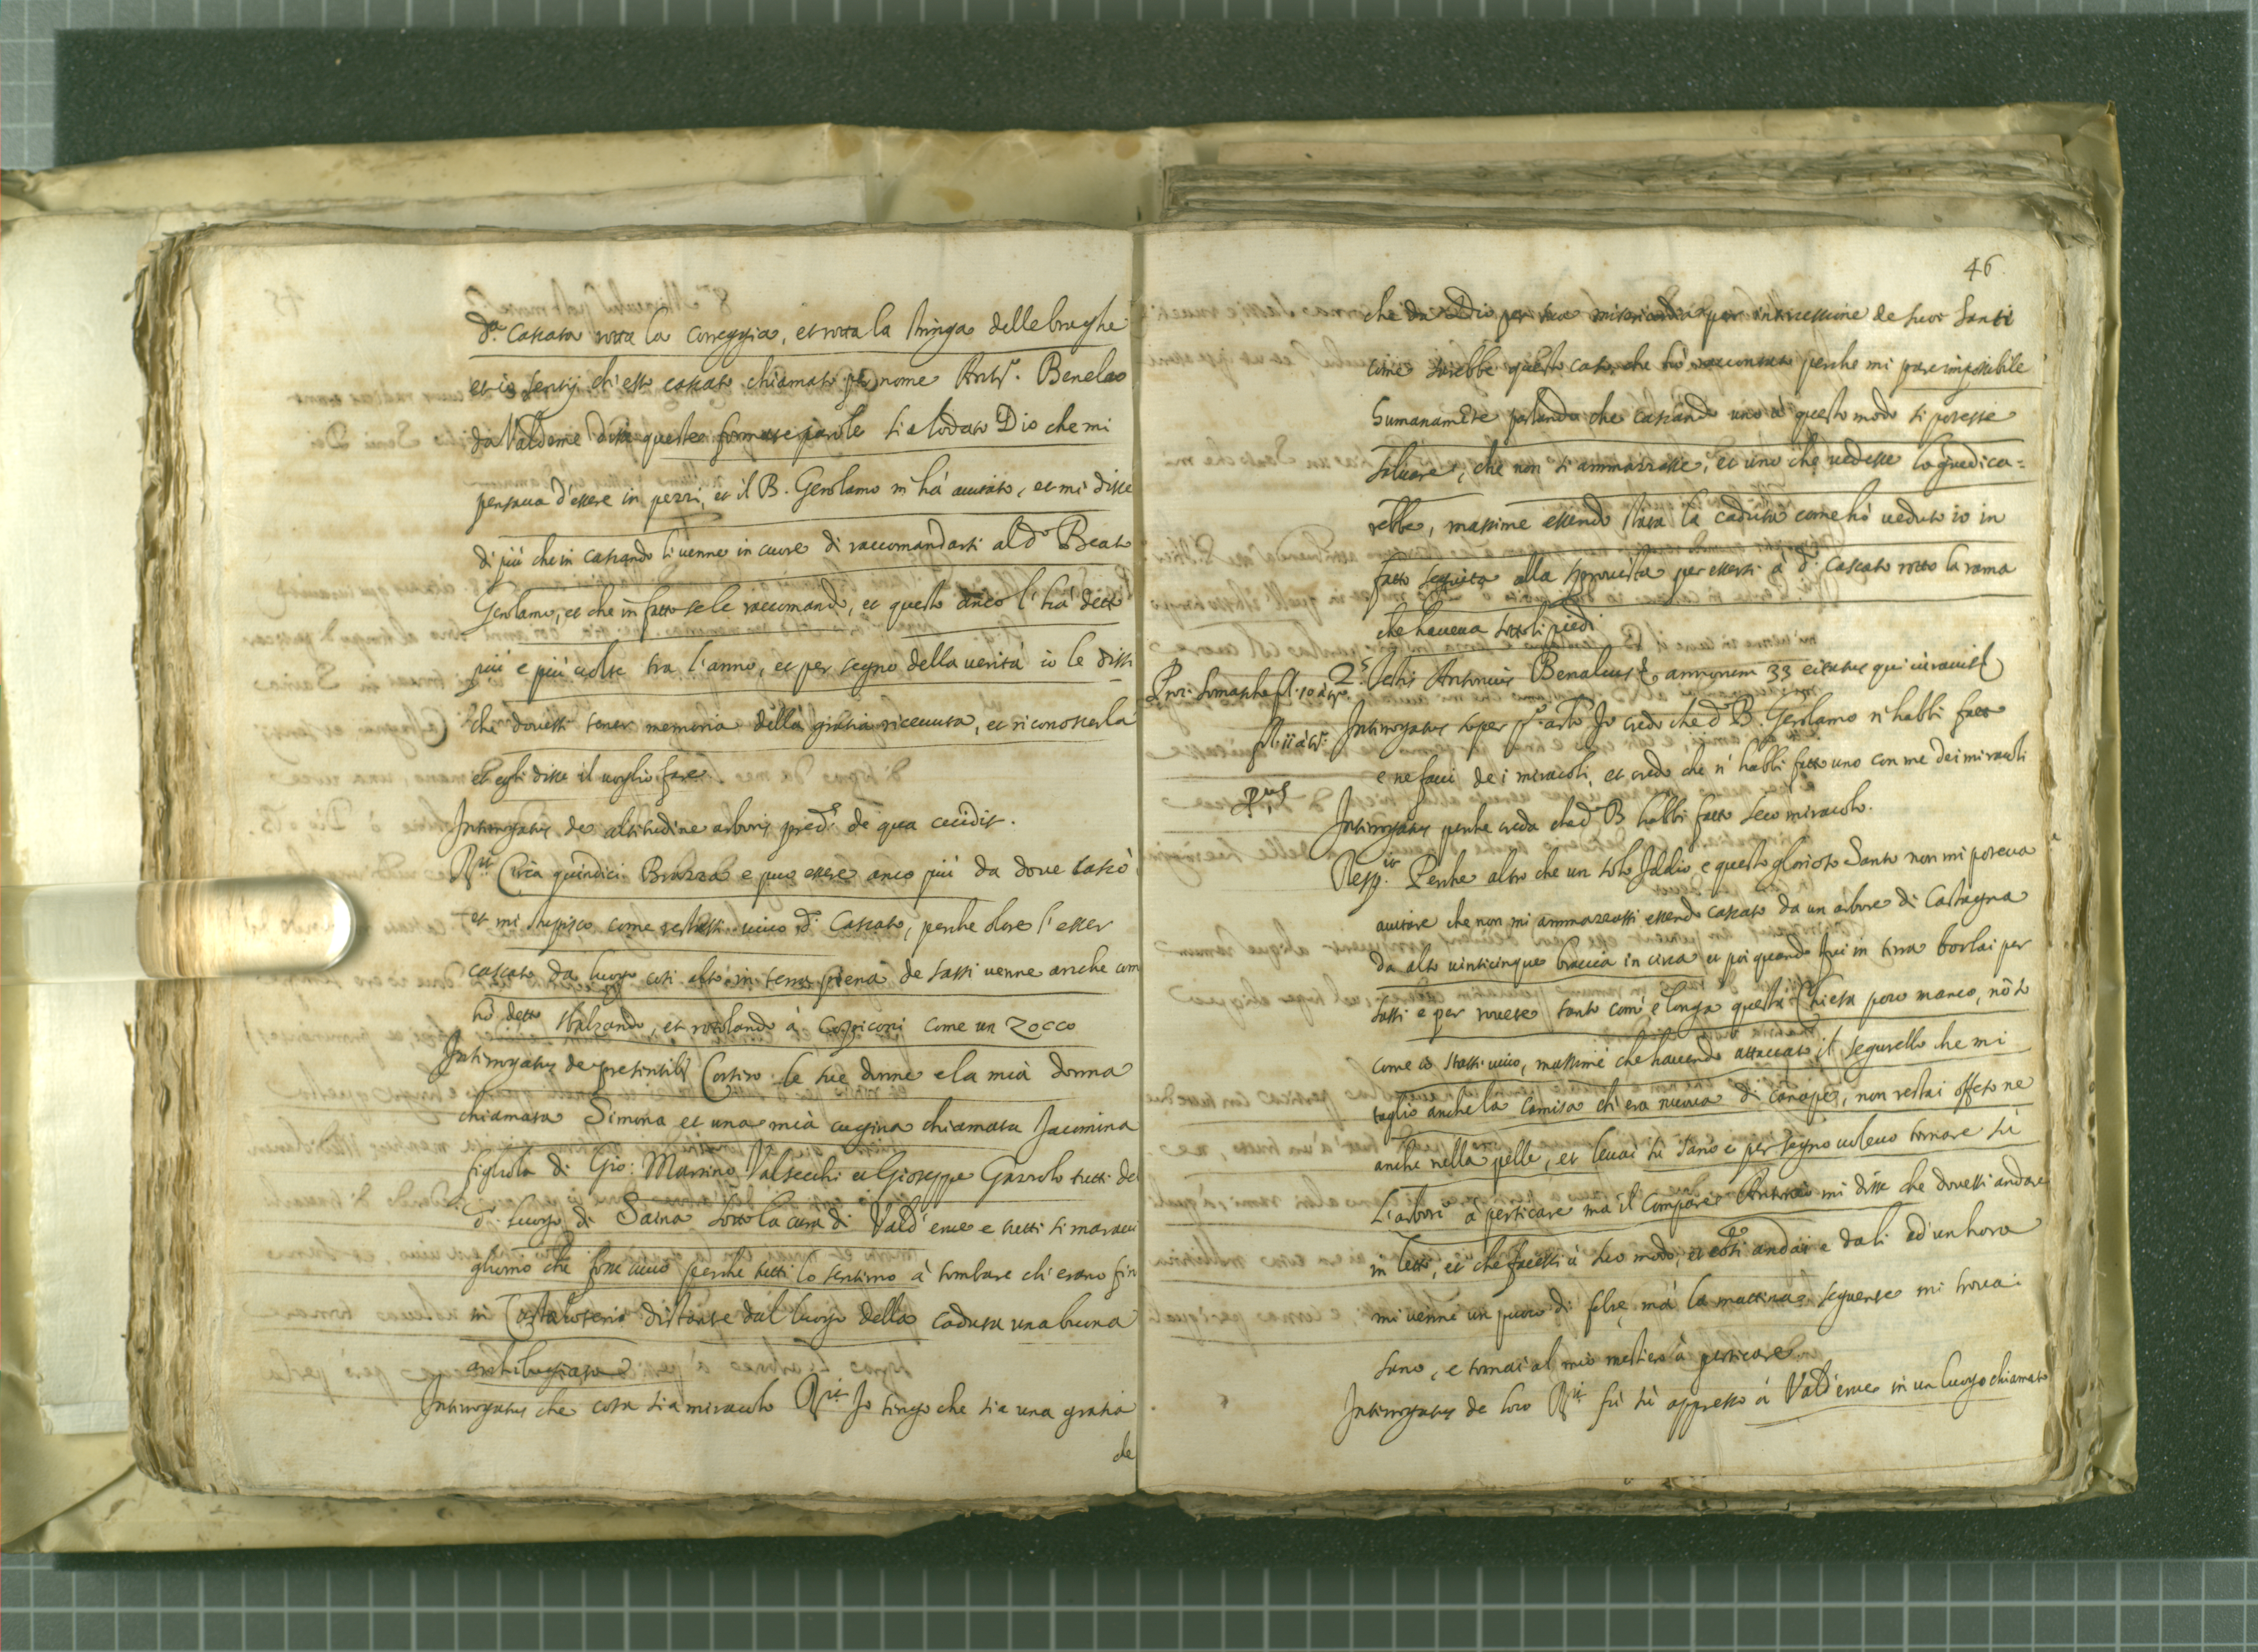 d.ª cascata rotta la coreggia, et rotta la stringa delle braghe
et io sentij ch'esso cascato chiamato per nome Ant.º Benalao
da Valderue disse queste formate parole sia lodato Dio che mi
pensaua d'essere in pezzi, et il B. Gerolamo m'há aiutato, et mi disse
di piú che in cascando li venne in cuore di raccomandarsi al d.º Beato
Gerolamo, et che in fatto se le raccomandò, et questo anco l'há detto
piú e piú volte tra l'anno, et per segno della uerità io le dissi
che douesse tener memoria della gratia riceuuta, et riconoscerla
et egli disse il uoglio fare
Interrogatus de altitudine arboris pred.ª de qua cecidit.
R.it Circa quindici Brazza e puo essere anco piú da doue cascò
et mi stupisco come restasse uiuo d.º Cascato, perche oltre l'esser
cascato da luogo cosi alto in terra piena de sassi uenne anche com
hò detto sbalzando, et rotolando à Cozziconi come un zocco
Interrogatus de presentib. Costoro le sue donne e la mià donna
chiamata Simona et una mià cugina chiamata Jacomina
figliola di Gio: Martino Valsecchi et Gioseppe Gazzolo tutti del
d.º luogo di Saina sotto la cura di Vald'erue e tutti si maraui
gliorno che fosse uiuo perche tutti lo sentirno à tombare ch'erano fin
in Costalottiero distante dal luogo della caduta una buona
archibugiata
Interrogatus che cosa sia miracolo R.it Io tengo che sia una gratia
de
46
che da Dio per sua misericordia per intercessione de suoi Santi
come sarebbe questo caso, che hò raccontato perche mi pare impossibile
humanamẽte parlando che cascando uno à questo modo si potesse
saluare, che non si ammazzasse, et uno che uedesse lo giudica=
rebbe, massime essendo stata la caduta come hò ueduto io in
fatto seguita alla sprouista per essersi à d.º Cascato rotto la rama
che haueua sotto li piedi
Proc. Somascha fl. 10 à t.º
fl. 11 à t.º
2.s Testis Antonius Benaleus annorum 33 citatus qui iurauit
Interrogatus super p.º art.º Io credo che d.º B. Gerolamo n'habbi fatto
e ne facci de i miracoli, et credo che n'habbi fatto uno con me dei miracoli
Interrogatus perche creda che d.º B. habbi fatto seco miracolo.
Resp.it Perche altro che un solo Iddio e questo glorioso Santo non mi poteua
aiutare che non mi ammazzassi essendo cascato da un arbore di Castagna
da alto uinticinque braccia in circa et poi quando fui in terra borlai per
sassi e per rouere tanto com'e longa questa Chiesa poco manco, nõ sò
come io stassi uiuo, massime che hauendo attaccato il segurello che mi
taglio anche la camisa ch'era nuoua di canape, non restai offeso ne
anche nella pelle, et leuai sù sano e per segno uoleuo tornare sù
l'arbori à perticare ma il Compare Antonio mi disse che douessi andare
in letto, et che facessi à suo modo, et così andai e da li ed'un hora
mi uenne un puoco di febre, má la mattina seguente mi trouai
sano, e tornai al mio mestiero à perticare.
Interrogatus de loco R.it fù sù appresso à Vald'erue in un luogo chiamato